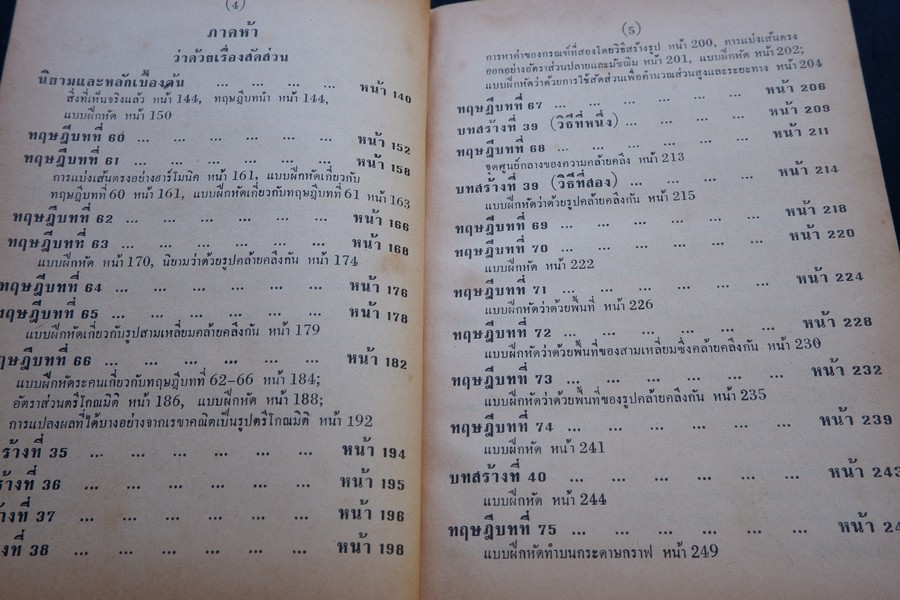 (4)
ภาคห้า
ว่าด้วยเรื่องสัดส่วน
นิยามและหลักเบื้องต้น ... ... ... ... หน้า 140
สิ่งที่เห็นจริงแล้ว หน้า 144, ทฤษฎีบทนำ หน้า 144,
แบบฝึกหัด หน้า 150
ทฤษฎีบทที่ 60 ... ... ... ... ... ... หน้า 152
ทฤษฎีบทที่ 61 ... ... ... ... ... ... หน้า 158
การแบ่งเส้นตรงอย่างฮาร์โมนิค หน้า 161, แบบฝึกหัดเกี่ยวกับ
ทฤษฎีบทที่ 60 หน้า 161, แบบฝึกหัดเกี่ยวกับทฤษฎีบทที่ 61 หน้า 163
ทฤษฎีบทที่ 62 ... ... ... ... ... หน้า 166
ทฤษฎีบทที่ 63 ... ... ... ... ... หน้า 168
แบบฝึกหัด หน้า 170, นิยามว่าด้วยรูปคล้ายคลึงกัน หน้า 174
ทฤษฎีบทที่ 64 ... ... ... ... ... หน้า 176
ทฤษฎีบทที่ 65 ... ... ... ... ... หน้า 178
แบบฝึกหัดเกี่ยวกับรูปสามเหลี่ยมคล้ายคลึงกัน หน้า 179
ทฤษฎีบทที่ 66 ... ... ... ... ... หน้า 182
แบบฝึกหัดระคนเกี่ยวกับทฤษฎีบทที่ 62-66 หน้า 184;
อัตราส่วนตรีโกณมิติ หน้า 186, แบบฝึกหัด หน้า 188;
การแปลงผลที่ได้บางอย่างจากเรขาคณิตเป็นรูปตรีโกณมิติ หน้า 192
ร้างที่ 35 ... ... ... ... ... หน้า 194
ร้างที่ 36 ... ... ... ... ... หน้า 195
้างที่ 37 ... ... ... ... ... หน้า 196
งที่ 38 ... ... ... ... ... หน้า 198
(5)
การหาค่าของกรณฑ์ที่สองโดยวิธีสร้างรูป หน้า 200, การแบ่งเส้นตรง
ออกอย่างอัตราส่วนปลายและมัชฌิม หน้า 201, แบบฝึกหัด หน้า 202;
แบบฝึกหัดว่าด้วยการใช้สัดส่วนเพื่อคำนวณส่วนสูงและระยะทาง หน้า 204
ทฤษฎีบทที่ 67 ... ... ... ... ... ... หน้า 206
บทสร้างที่ 39 (วิธีที่หนึ่ง) ... ... ... ... หน้า 209
ทฤษฎีบทที่ 68 ... ... ... ... ... ... หน้า 211
จุดศูนย์กลางของความคล้ายคลึง หน้า 213
บทสร้างที่ 39 (วิธีที่สอง) ... ... ... ... หน้า 214
แบบฝึกหัดว่าด้วยรูปคล้ายคลึงกัน หน้า 215
ทฤษฎีบทที่ 69 ... ... ... ... ... หน้า 218
ทฤษฎีบทที่ 70 ... ... ... ... ... หน้า 220
แบบฝึกหัด หน้า 222
ทฤษฎีบทที่ 71 ... ... ... ... ... หน้า 224
แบบฝึกหัดว่าด้วยพื้นที่ หน้า 226
ทฤษฎีบทที่ 72 ... ... ... ... ... หน้า 228
แบบฝึกหัดว่าด้วยพื้นที่ของสามเหลี่ยมซึ่งคล้ายคลึงกัน หน้า 230
ทฤษฎีบทที่ 73 ... ... ... ... ... หน้า 232
แบบฝึกหัดว่าด้วยพื้นที่ของรูปคล้ายคลึงกัน หน้า 235
ทฤษฎีบทที่ 74 ... ... ... ... ... หน้า 239
แบบฝึกหัด หน้า 241
บทสร้างที่ 40 ... ... ... ... ... หน้า 243
แบบฝึกหัด หน้า 244
ทฤษฎีบทที่ 75 ... ... ... ... ... หน้า
แบบฝึกหัดทำบนกระดาษกราฟ หน้า 249